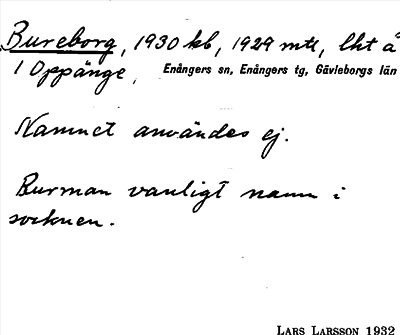 Bureborg, 1930 kb, 1929 mtl, lht å
1 Oppänge, Enångers sn, Enångers tg, Gävleborgs län
Namnet användes ej.
Burman vanligt namn i
socknen.
LARS LARSSON 1932